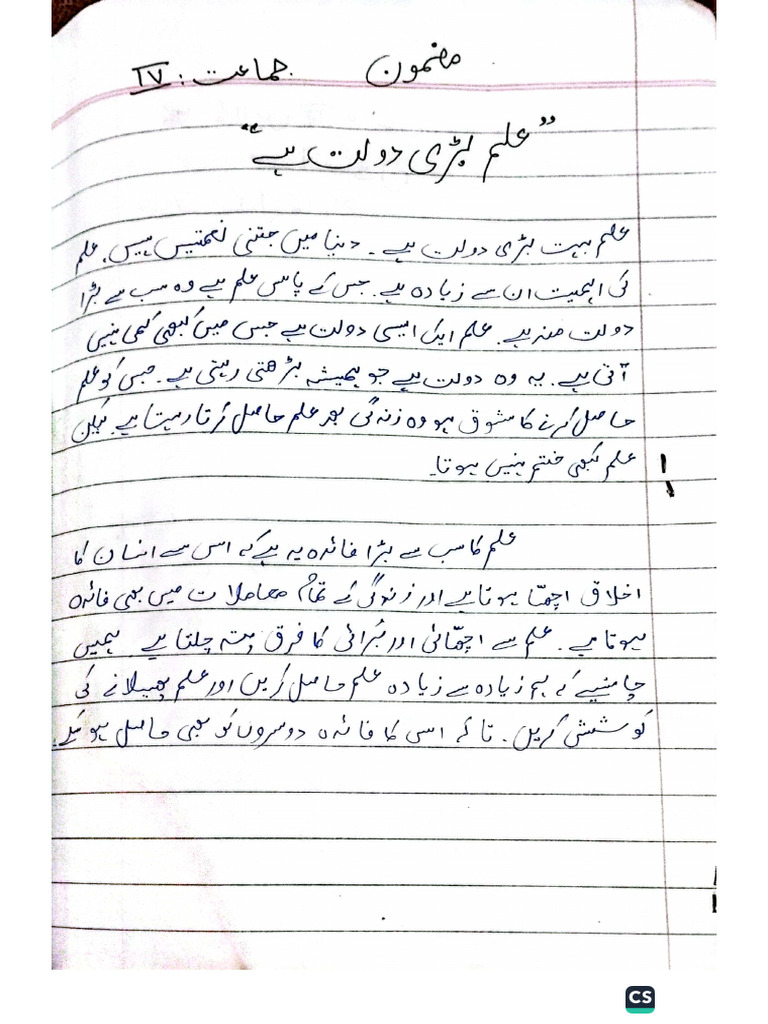 مضمون جماعت: IV
"علم بڑی دولت ہے"
علم بہت بڑی دولت ہے۔ دنیا میں جتنی نعمتیں ہیں، علم
کی اہمیت ان سے زیادہ ہے۔ جس کے پاس علم ہے وہ سب سے بڑا
دولت مند ہے۔ علم ایک ایسی دولت ہے جس میں کبھی کمی نہیں
آتی ہے۔ یہ وہ دولت ہے جو ہمیشہ بڑھتی رہتی ہے۔ جس کو علم
حاصل کرنے کا شوق ہو وہ زندگی بھر علم حاصل کرتا رہتا ہے۔ لیکن
علم کبھی ختم نہیں ہوتا۔
علم کا سب سے بڑا فائدہ یہ ہے کہ اس سے انسان کا
اخلاق اچھّا ہوتا ہے اور زندگی کے تمام معاملات میں بھی فائدہ
ہوتا ہے۔ علم سے اچھّائی اور بُرائی کا فرق پتہ چلتا ہے۔ ہمیں
چاہئیے کہ ہم زیادہ سے زیادہ علم حاصل کریں اور علم پھیلانے کی
کوشش کریں۔ تاکہ اس کا فائدہ دوسروں کو بھی حاصل ہو سکے۔
CS